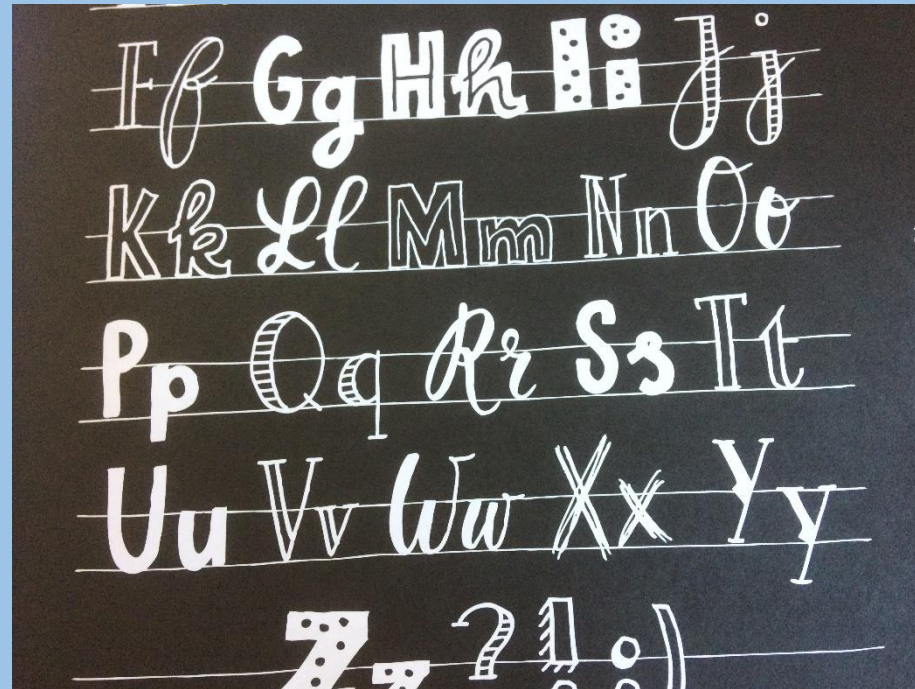 Ff Gg Hh Ii Jj
Kk Ll Mm Nn Oo
Pp Qq Rr Ss Tt
Uu Vv Ww Xx Yy
Zz ? ! :)